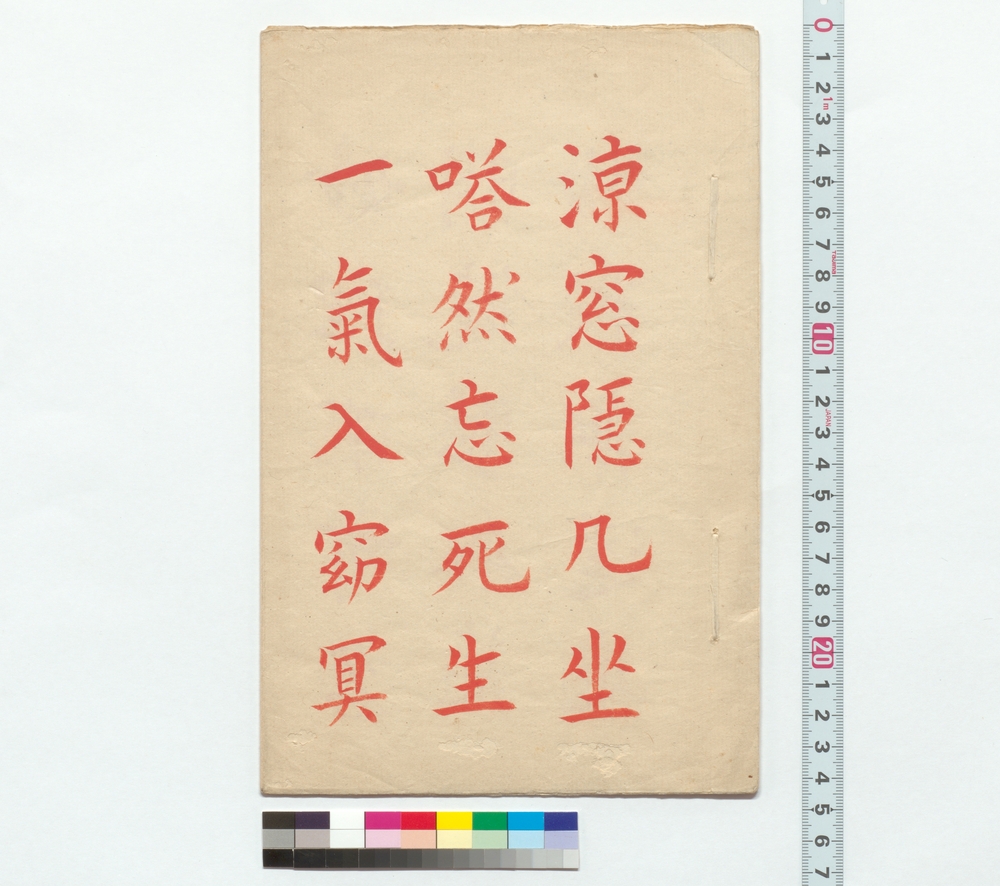 涼窓隠几坐
嗒然忘死生
一氣入窈冥
0 1 2 3 4 5 6 7 8 9 10 1 2 3 4 5 6 7 8 9 20 1 2 3 4 5 6 7
1m
JAPAN